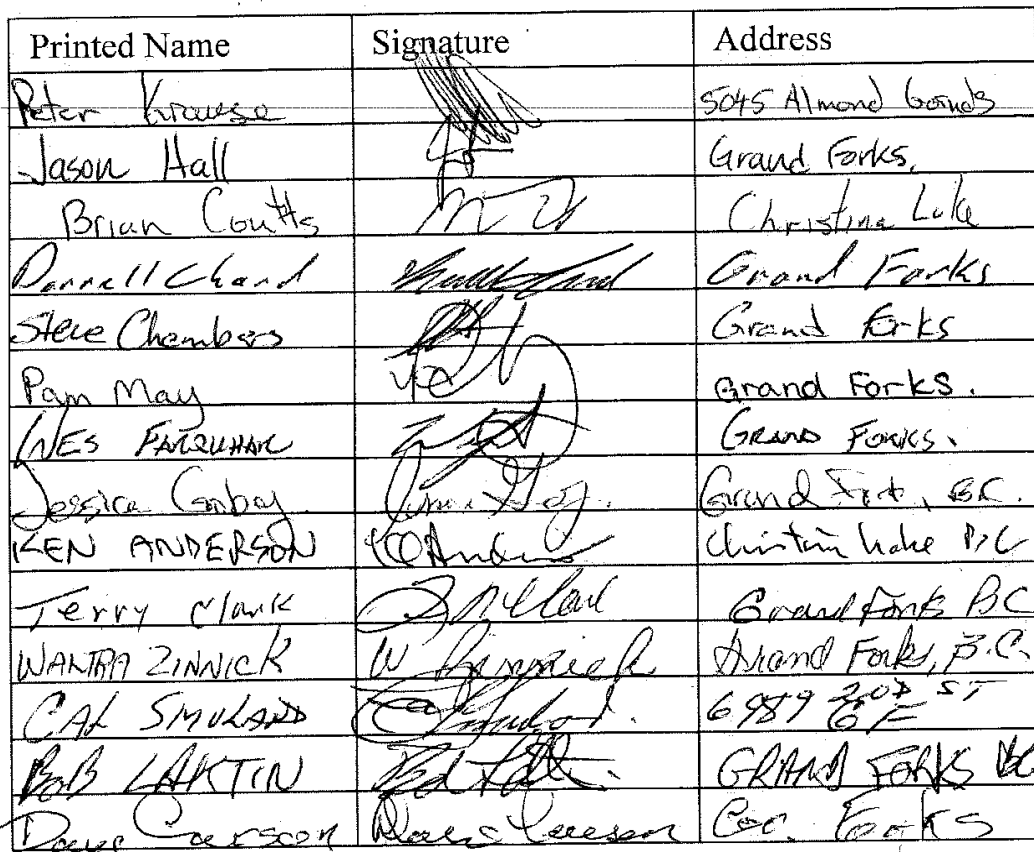 Printed Name Signature Address
Peter Krause 5045 Almond
Jason Hall Grand Forks.
Brian Coutts Christina Lake
Darrell Chand Grand Forks
Steve Chambers Grand Forks
Pam May Grand Forks.
WES FARQUHAR GRAND FORKS.
Jessica Grand Forks, BC.
KEN ANDERSON KAnderson Christina Lake BC
Terry Clark Grand Forks BC
ZINNICK W Zinnick Grand Forks, B.C.
CAL 6989 2ND ST GF
BOB LAKTIN GRAND FORKS BC
Dave Carson Forks